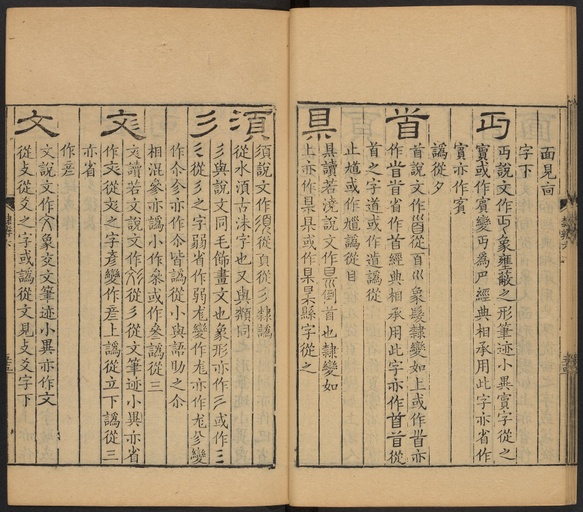 面見𦣻
字下
丏
丏說文作丏象壅蔽之形筆迹小異賓字從之
賓或作賔變丏為𡧍經典相承用此字亦省作
賓亦作賔
譌從夕
首
首說文作𩠐從𦣻巛象髮隸變如上或作𩠐亦
作𩠐首省作首經典相承用此字亦作首首從
首之字道或作道譌從
止馗或作馗譌從目
県
県讀若澆說文作県到首也隸變如
上亦作県県或作県県縣字從之
須
須說文作須從頁從彡隸譌
從水湏古沬字也又與類同
彡
彡與說文同毛飾畫文也象形亦作彡或作三
彡從彡之字弱省作弱尨變作尨亦作尨㐱變
作尒㐱亦作尒皆譌從小與語助之尒
相混參亦譌小作叅或作叅譌從三
彣
彣讀若文說文作彣從彡從文筆迹小異亦省
作文從彣之字彥變作彥上譌從立下譌從三
亦省
作彥
文
文說文作文象交文筆迹小異亦作文
從攴從爻之字或譌從文見攴爻字下
隸辨六